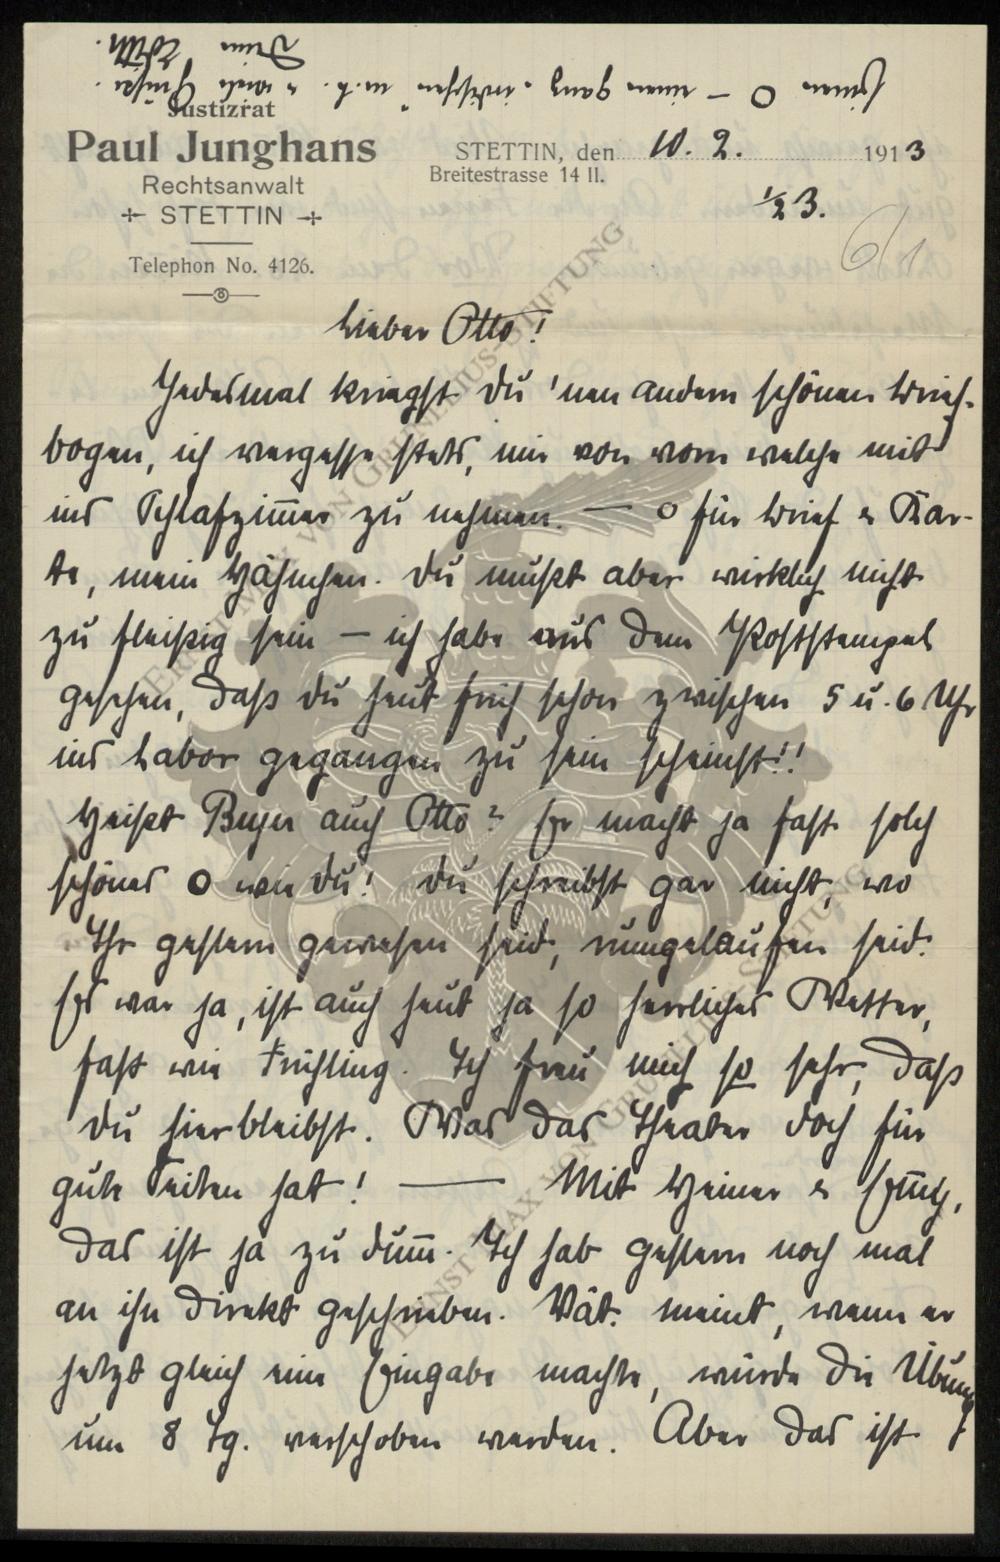 einen O – einen ganz "irdischen" m. h. & viele Grüße.
Deine Edith.
Justizrat
Paul Junghans
Rechtsanwalt
STETTIN
Telephon No. 4126.
STETTIN, den 10. 2. 1913
Breitestrasse 14 II.
1/2 3.
6/1
Lieber Otto!
Jedesmal kriegst Du 'nen andern schönen Brief-
bogen, ich vergesse stets, mir von vorn welche mit
ins Schlafzim̅er zu nehmen. — O für Brief & Kar-
te, mein Hähnchen. Du mußt aber wirklich nicht
zu fleißig sein – ich habe aus dem Poststempel
gesehen, daß Du heut früh schon zwischen 5 u. 6 Uhr
ins Labor gegangen zu sein scheinst!!
Heißt Beyer auch Otto? Er macht ja fast solch
schönes O wie Du! Du schreibst gar nicht, wo
Ihr gestern gewesen seid, rumgelaufen seid.
Es war ja, ist auch heut ja so herrliches Wetter,
fast wie Frühling. Ich freu mich so sehr, daß
Du hierbleibst. Was das Theater doch für
gute Seiten hat! — Mit Heiner &
das ist ja zu dum̅. Ich hab gestern noch mal
an ihn direkt geschrieben. Vät. meint, wenn er
jetzt gleich eine Eingabe machte, würde die Übung
um 8 Tg. verschoben werden. Aber das ist
ERNESTINE UND MAX VON GRUNELIUS-STIFTUNG
ERNST MAX VON GRUNELIUS-STIFTUNG